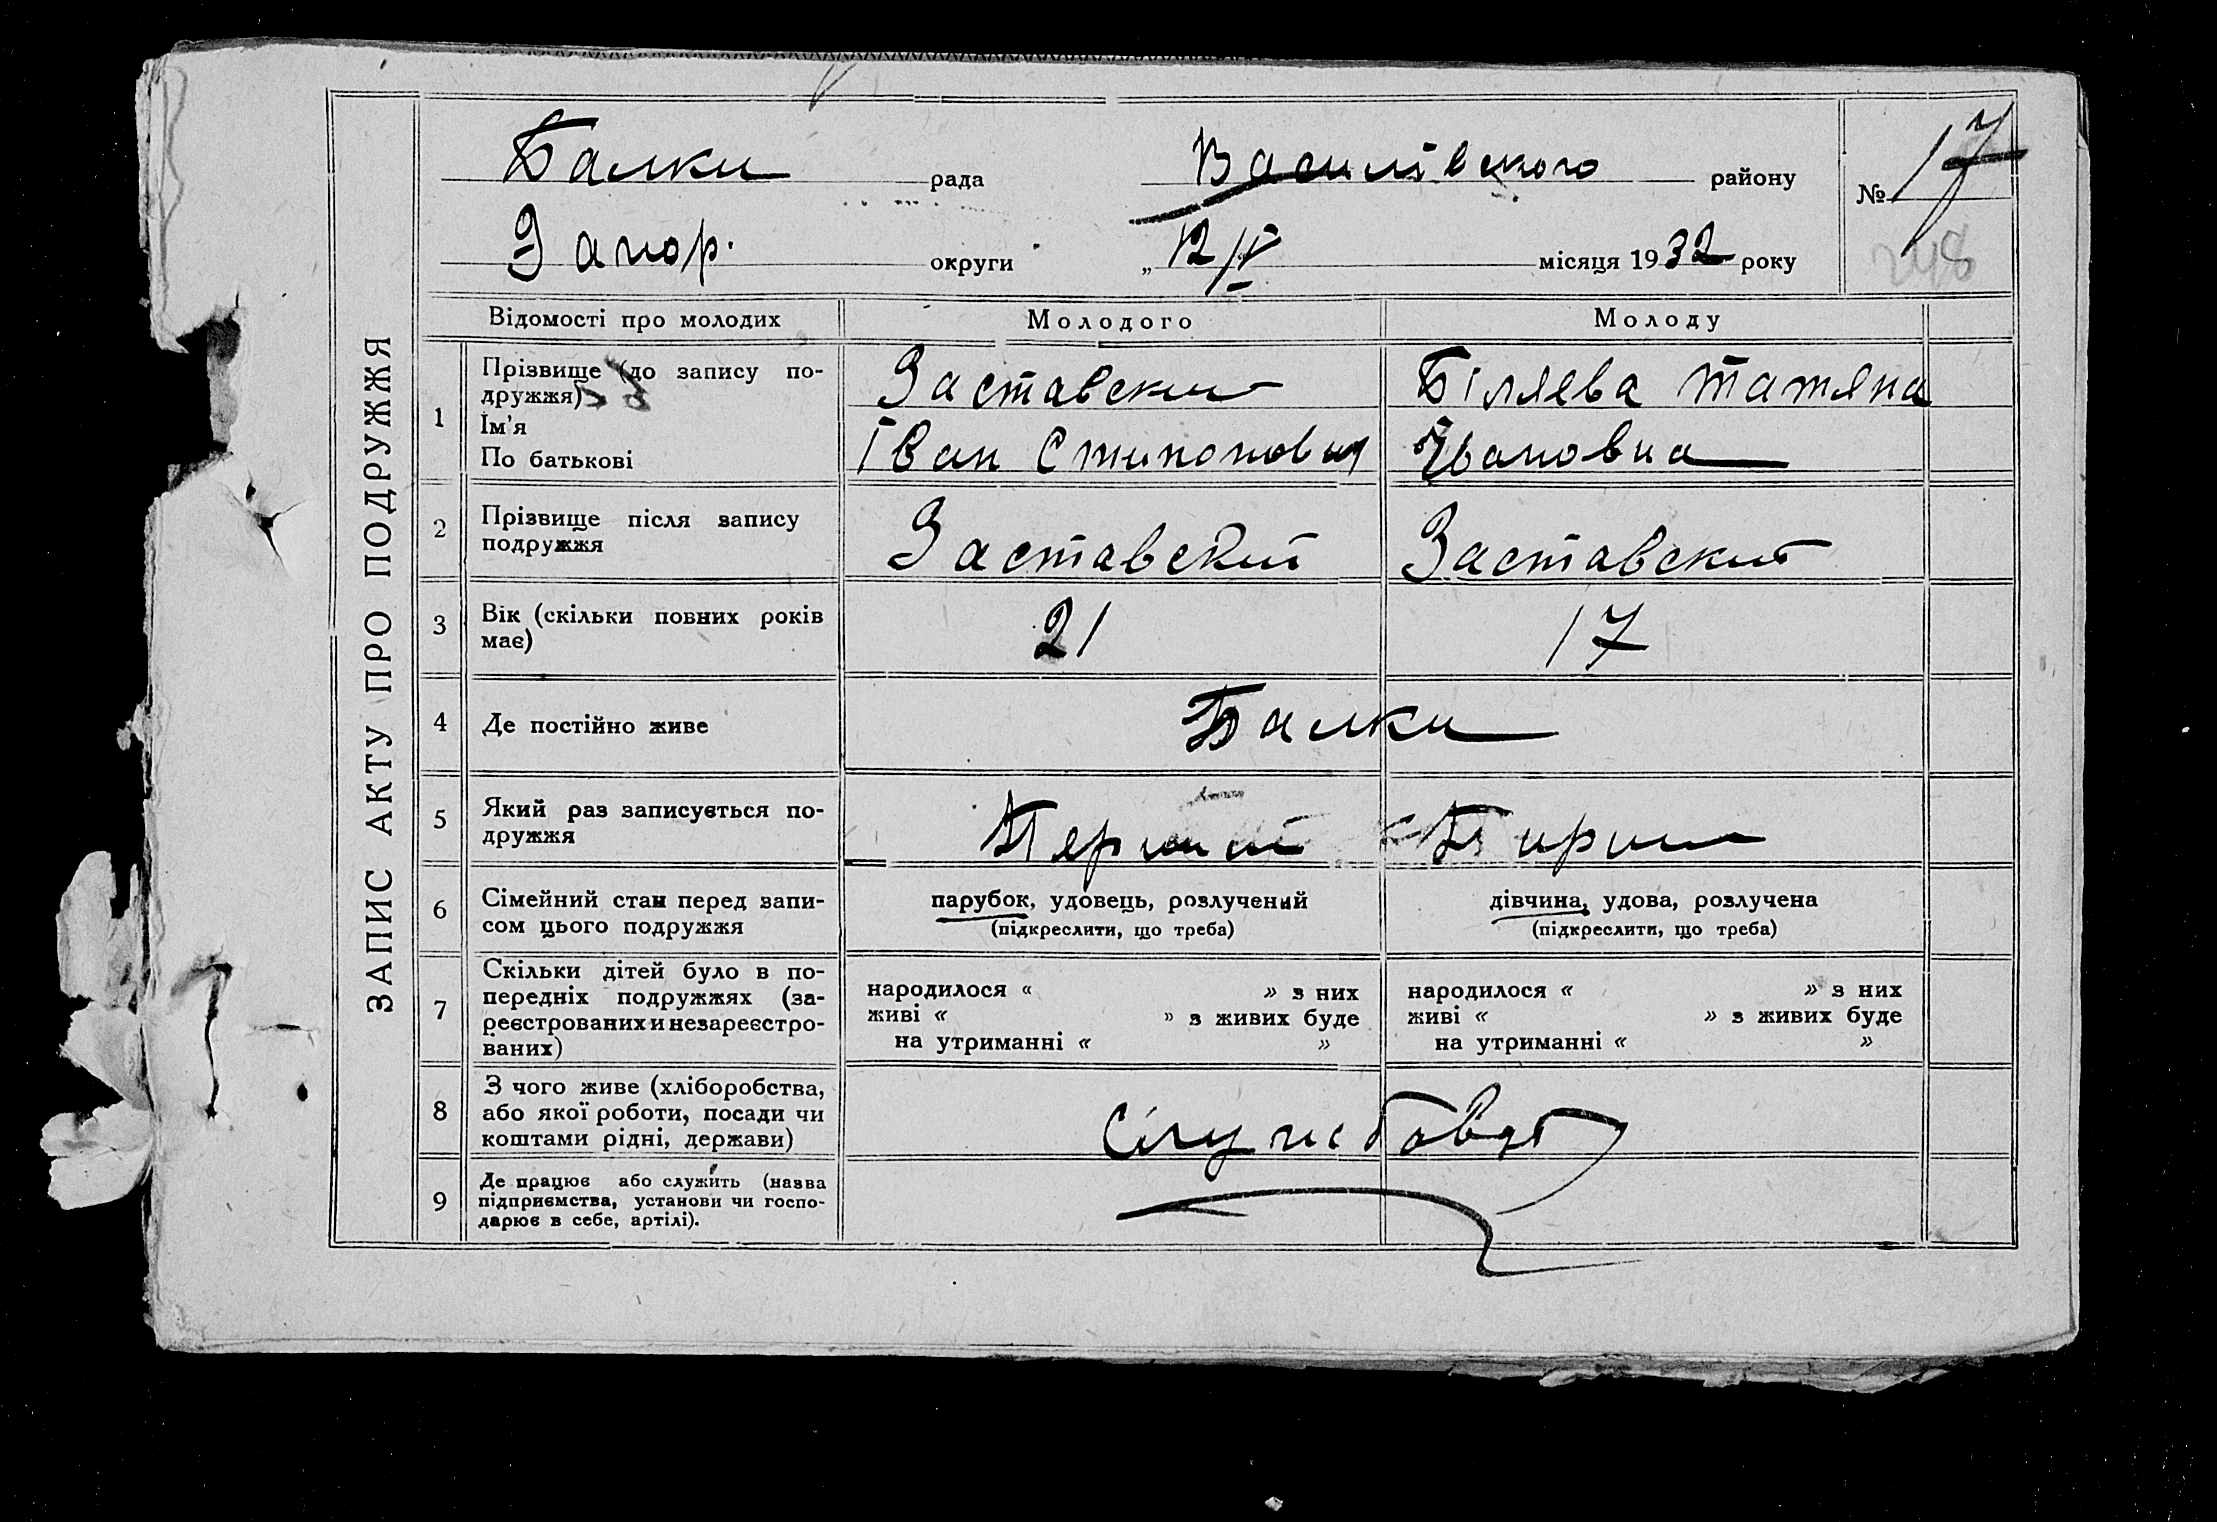 ЗАПИС АКТУ ПРО ПОДРУЖЖЯ
Балки рада Василівского району № 17
Запор. округи „12/IV місяця 1932 року 248
Відомості про молодих Молодого Молоду
1 Прізвище (до запису по-
дружжя)
Ім'я
По батькові
Заставский
Іван
Біляева Татяна
Івановна
2 Прізвище після запису
подружжя
Заставский Заставский
3 Вік (скільки повних років
має)
21 17
4 Де постійно живе Балки
5 Який раз записується по-
дружжя
Перший
6 Сімейний стан перед запи-
сом цього подружжя
парубок, удовець, розлучений
(підкреслити, що треба)
дівчина, удова, розлучена
(підкреслити, що треба)
7 Скільки дітей було в по-
передніх подружжях (за-
реєстрованих и незареєстро-
ваних)
народилося « » з них
живі « » з живих буде
на утриманні « »
народилося « » з них
живі « » з живих буде
на утриманні « »
8 З чого живе (хліборобства,
або якої роботи, посади чи
коштами рідні, держави)
9 Де працює або служить (назва
підприємства, установи чи госпо-
дарює в себе, артілі).